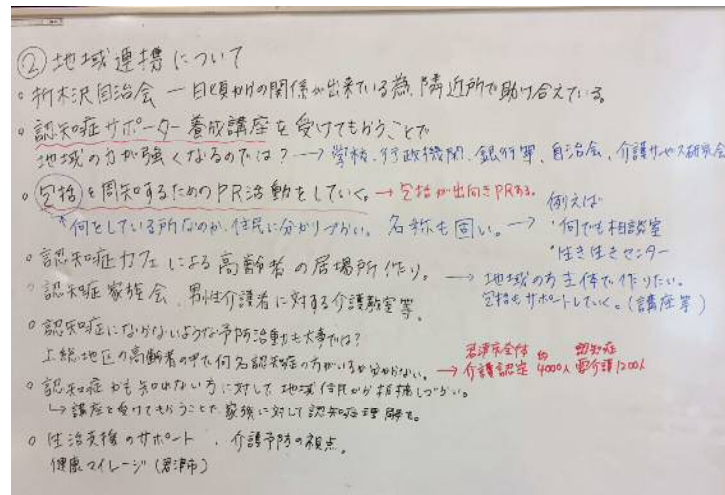 ② 地域連携について
○ 折木沢自治会 ー 日頃からの関係が出来ている為、隣近所で助け合えている。
○ 認知症サポーター養成講座を受けてもらうことで
地域の方が強くなるのでは? → 学校、行政機関、銀行等、自治会、介護サービス研究会
○ 包括を周知するためのPR活動をしていく。→ 包括が出向きPRする。
何をしている所なのか、住民に分かりづらい。名称も固い。→
例えば
・何でも相談室
・生き生きセンター
○ 認知症カフェによる高齢者の居場所作り。
→ 地域の方主体で作りたい。
包括もサポートしていく。(講座等)
○ 認知症家族会、男性介護者に対する介護教室等。
○ 認知症にならないような予防活動も大事では?
上総地区の高齢者の中で何名認知症の方がいるか分からない。
→ 君津市全体 約 認知症
介護認定 4000人 要介護1200人
○ 認知症かも知れない方に対して地域住民から指摘しづらい。
↳ 講座を受けてもらうことで、家族に対して認知症理解を。
○ 生活支援のサポート、介護予防の視点。
健康マイレージ(君津市)